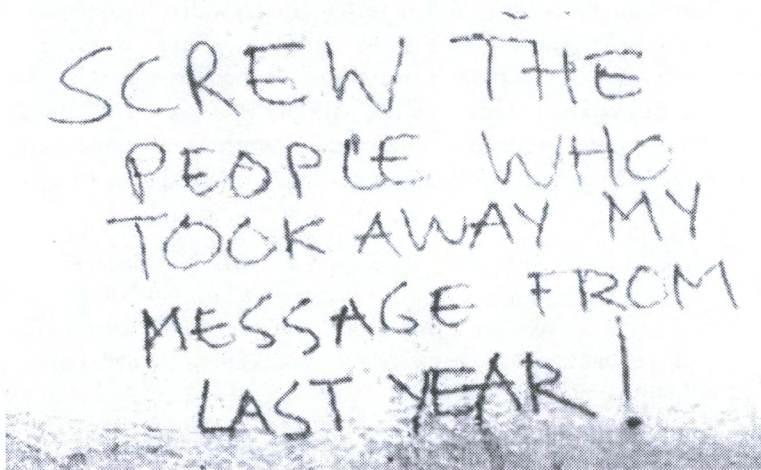 SCREW THE
PEOPLE WHO
TOOK AWAY MY
MESSAGE FROM
LAST YEAR!